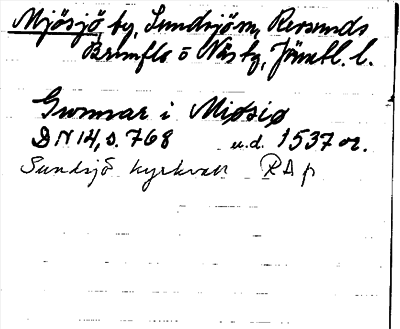 Mjösjö, by, Sundsjö sn, Revsunds
Brunflo o Näs tg, Jämtl. l.
Gunnar i Miösiø
DN 14, s. 768 u.d. 1537 or.
Sundsjö kyrkvall RA p